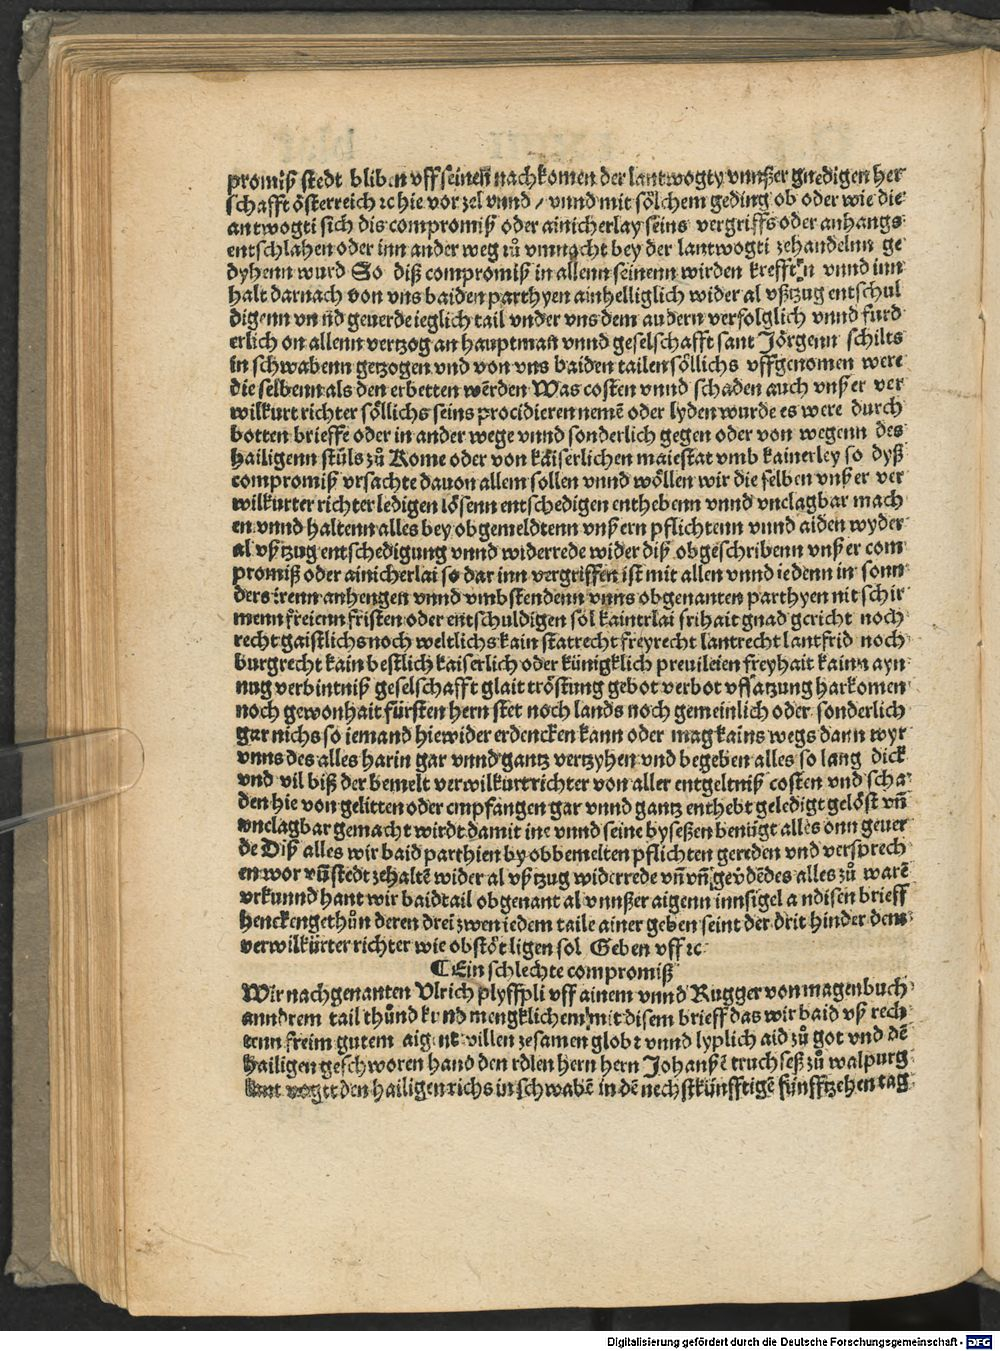 promiß stedt bliben vff seinen nachkomen der lantwogty vnnßer gnedigen her
schafft österreich ⁊c hie vor zel vnnd / vnnd mit sölchem geding ob oder wie die
antwogti sich dis compromiß oder ainicherlay seins vergriffs oder anhangs
entschlahen oder inn ander weg zů vnmacht bey der lantwogti zehandelnn ge
dyhenn wurd So diß compromiß in allenn seinenn wirden krefften vnnd inn
halt darnach von vns baiden parthyen ainhelliglich wider al vßtzug entschul
digenn vnnd geuerde ieglich tail vnder vns dem andern verfolglich vnnd furd
erlich on allenn vertzog an hauptman vnnd geselschafft sant Jörgenn schilts
in schwabenn getzogen vnd von vns baiden tailen söllichs vffgenomen were
die selbenn als den erbetten wērden Was costen vnnd schaden auch vnßer ver
wilkurt richter söllichs seins procidieren nemē oder lyden wurde es were durch
botten brieffe oder in ander wege vnnd sonderlich gegen oder von wegenn des
hailigenn stůls zů Rome oder von käiserlichen maiestat vmb kainerley so dyß
compromiß vrsachte dauon allem sollen vnnd wöllen wir die selben vnßer ver
wilkurter richter ledigen lösenn entschedigen enthebenn vnnd vnclagbar mach
en vnnd haltenn alles bey obgemeldtenn vnßern pflichtenn vnnd aiden wyder
al vßtzug entschedigung vnnd widerrede wider diß obgeschribenn vnßer com
promiß oder ainicherlai so dar inn vergriffen ist mit allen vnnd iedenn in sonn
ders irenn anhengen vnnd vmbstendenn vnns obgenanten parthyen nit schir
menn freienn fristen oder entschuldigen sol kainerlai frihait gnad gericht noch
recht gaistlichs noch weltlichs kain statrecht freyrecht lantrecht lantfrid noch
burgrecht kain bestlich kaiserlich oder künigklich preuileien freyhait kainn ayn
nug verbintniß geselschafft glait tröstung gebot verbot vffsatzung harkomen
noch gewonhait fürsten hern stet noch lands noch gemeinlich oder sonderlich
gar nichs so iemand hiewider erdencken kann oder mag kains wegs dann wyr
vnns des alles harin gar vnnd gantz vertzyhen vnd begeben alles so lang dick
vnd vil biß der bemelt verwilkurt richter von aller entgeltniß costen vnd scha
den hie von gelitten oder empfangen gar vnnd gantz enthebt geledigt gelöst vñ
vnclagbar gemacht wirdt damit ine vnnd seine byseßen benügt alles onn geuer
de Diß alles wir baid parthien by obbemelten pflichten gereden vnd versprech
en wor vñ stedt zehaltē wider al vßtzug widerrede vñ vñ geṽdēdes alles zů warē
vrkunnd hant wir baidtail obgenant al vnnßer aigenn innsigel a ndisen brieff
henckengethůn deren drei zwen iedem taile ainer geben seint der drit hinder dem
verwilkürter richter wie obstöt ligen sol Geben vff ⁊c
¶ Ein schlechte compromiß
Wir nachgenanten Vlrich plyffpli vff ainem vnnd Rugger von magenbuch
anndrem tail thůnd kund mengklichem mit disem brieff das wir baid vß rech
tenn freim gutem aigent villen zesamen globt vnnd lyplich aid zů got vnd dē
hailigen geschworen hand den edlen hern hern Johanßē truchseß zů walpurg
lant vogtt den hailigen richs in schwabē in dē nechstkünfftigē fünfftzehen tag
Digitalisierung gefördert durch die Deutsche Forschungsgemeinschaft - DFG